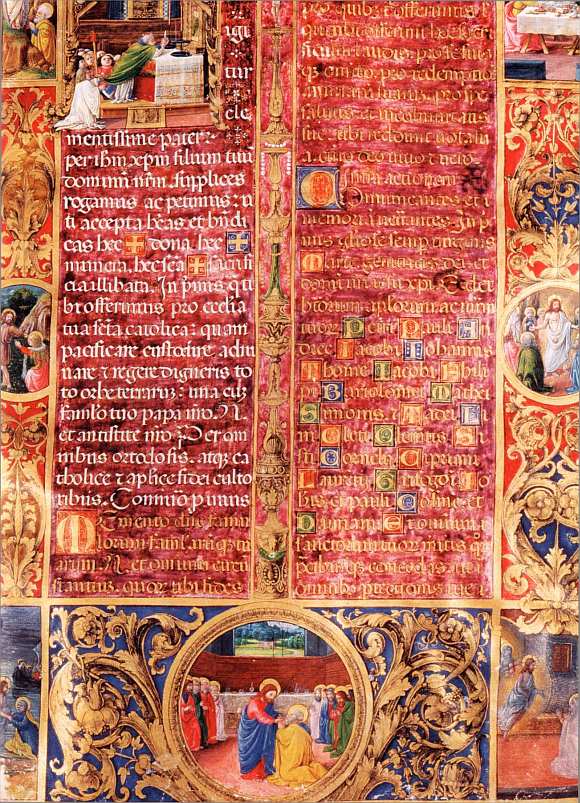 igi
tur
cle
mentissime pater:
per ihm xpm filium tuū
domīnū nr̄m. supplices
rogamus ac petimus: u
ti accepta hēas et bn̄di
cas hec ✠ dona hec ✠
munera. hec sc̄a ✠ sacrifi
cia illibata. In pmis que ti
bi offerimus pro ecclia
tua sc̄ta catolica: quam
pacificare custodire. adiu
nare & regere digneris to
to orbe terrarum: una cuz
famlo tuo papa nr̄o N.
et antistite nr̄o. et om
nibus ortodosis. atque ca
tholice & aplice fidei culto
ribus.
Memento dn̄e famu
lorum famularumque tu
arum N. et omnium circū
stantium. quorum tibi fides
pro quibus tibi offerimus
offerunt hoc
laudis. pro se suis
que omnibus. pro redemptione
animarum suarum. pro spe
salutis et incolumitatis
sue. tibi reddunt uota sua
eterno deo uiuo & uero
Infra actionem
Comunicantes et
memoriā uenerantes. In p
mis gloriose semper uirginis
Marie genitricis dei et
domini nri ihu xpi. Sed et
btorum aplorum ac mar
tirum Petri Pauli An
dree Iacobi Iohannis
Thome Iacobi Phili
pi Bartolomei Mathei
Simonis & Tadei
lini Cleti Clementis Sisti
Cornelii Cipriani
Laurentii Grisogoni Io
hīs. et pauli Cosme et
Damiani Et omnium
sanctorum tuorum meritis que
precibusque concedas. ut in
omnibus protectionis tue